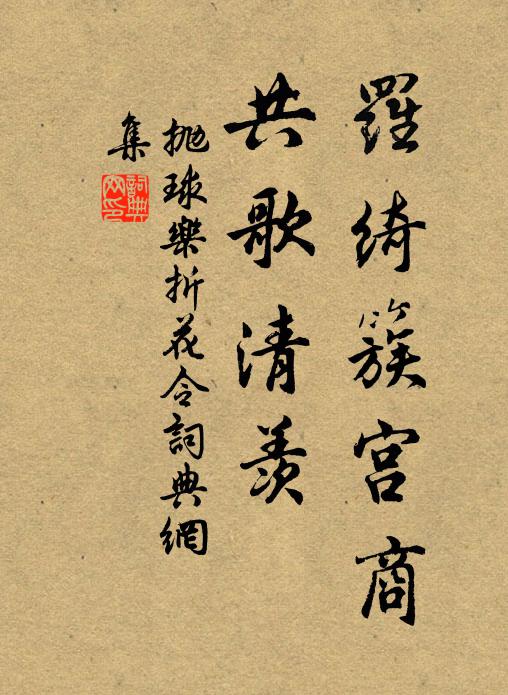 羅綺簇宮商
共歌清羨
拋球樂折花令詞典網
集
詞典